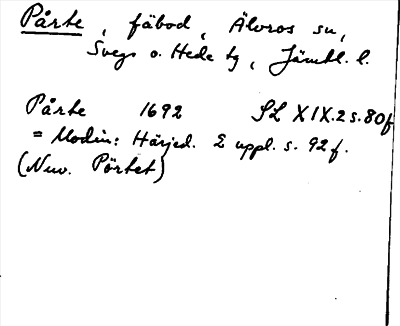 Pårte, fäbod, Älvros sn,
Svegs o. Hede tg, Jämtl. l.
Pårte 1692 SL XIX.2 s. 80f
= Modin: Härjed. 2 uppl. s. 92 f.
(Nuv. Pörtet)